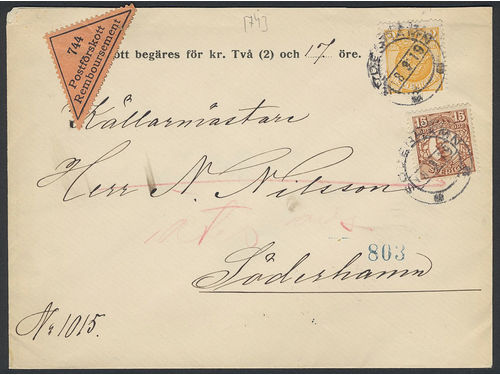 1743
744
Postförskott
Remboursement
ott begäres för kr. Två (2) och 17 öre.
Källarmästare
Herr N. Nilsson
803
Söderhamn
No 1015.
SÖDERHAMN
15 15
SVERIGE
SÖDERHAMN